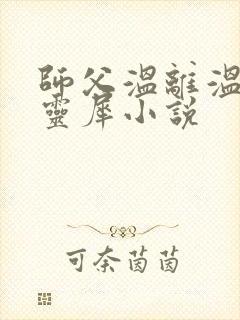 師父溫離溫
靈犀小說
可奈茵茵